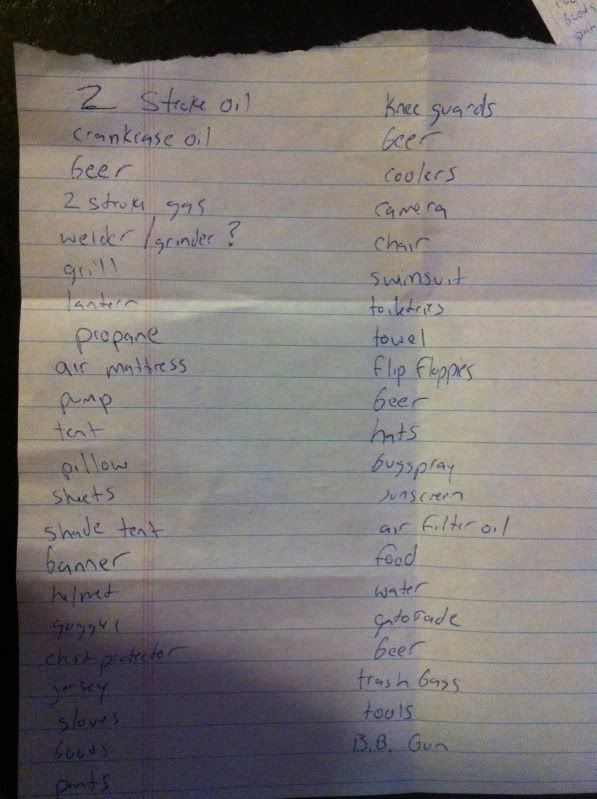 2 Stroke oil
crankcase oil
beer
2 stroke gas
welder/grinder?
grill
lantern
propane
air mattress
pump
tent
pillow
sheets
shade tent
banner
helmet
goggles
chest protector
jersey
gloves
boots
pants
knee guards
beer
coolers
camera
chair
swimsuit
toiletries
towel
flip floppies
beer
hats
bugspray
sunscreen
air filter oil
food
water
gatorade
beer
trash bags
tools
B.B. Gun